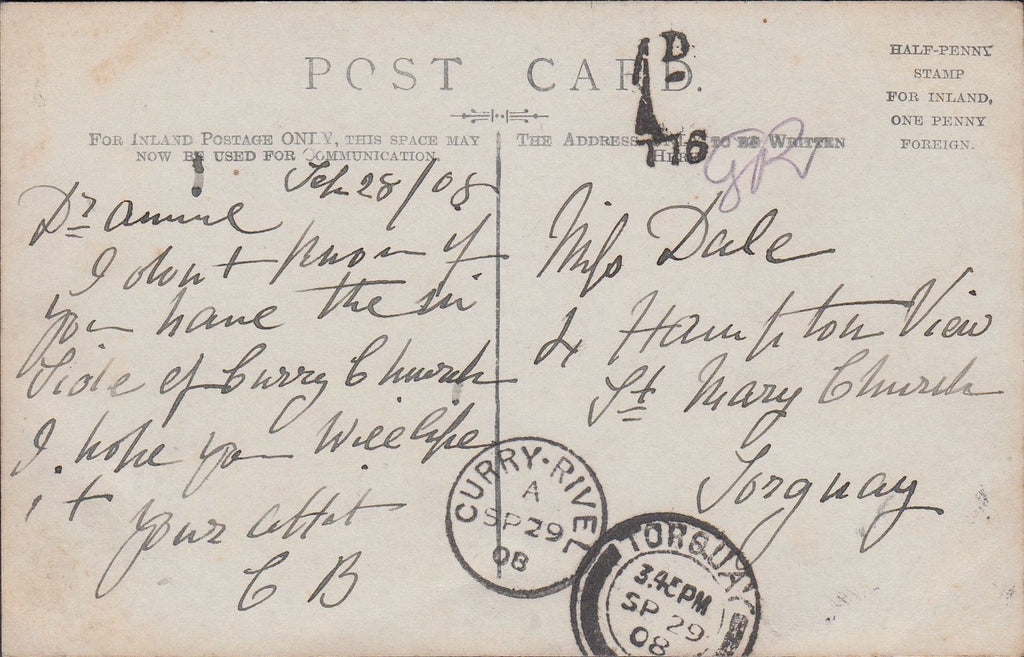 POST CARD.
HALF-PENNY
STAMP
FOR INLAND,
ONE PENNY
FOREIGN.
1D
T 16
FOR INLAND POSTAGE ONLY, THIS SPACE MAY
NOW BE USED FOR COMMUNICATION.
THE ADDRESS TO BE WRITTEN
HERE
Sep 28/08
Dr Annie
I don't know if
you have the in
side of Curry Church
I hope you will like
it
your affct
C B
Miss Dale
4 Hampton View
St Mary Church
Torquay
CURRY-RIVEL
A
SP 29
08
TORQUAY
3.45PM
SP 29
08